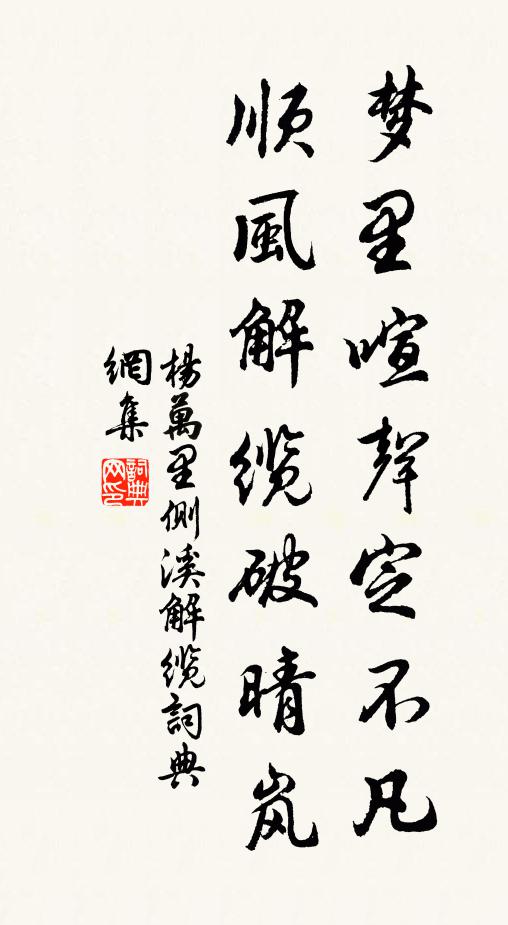 梦里喧聲定不凡
順風解缆破晴岚
楊萬里側溪解缆詞典
網集
詞典网印